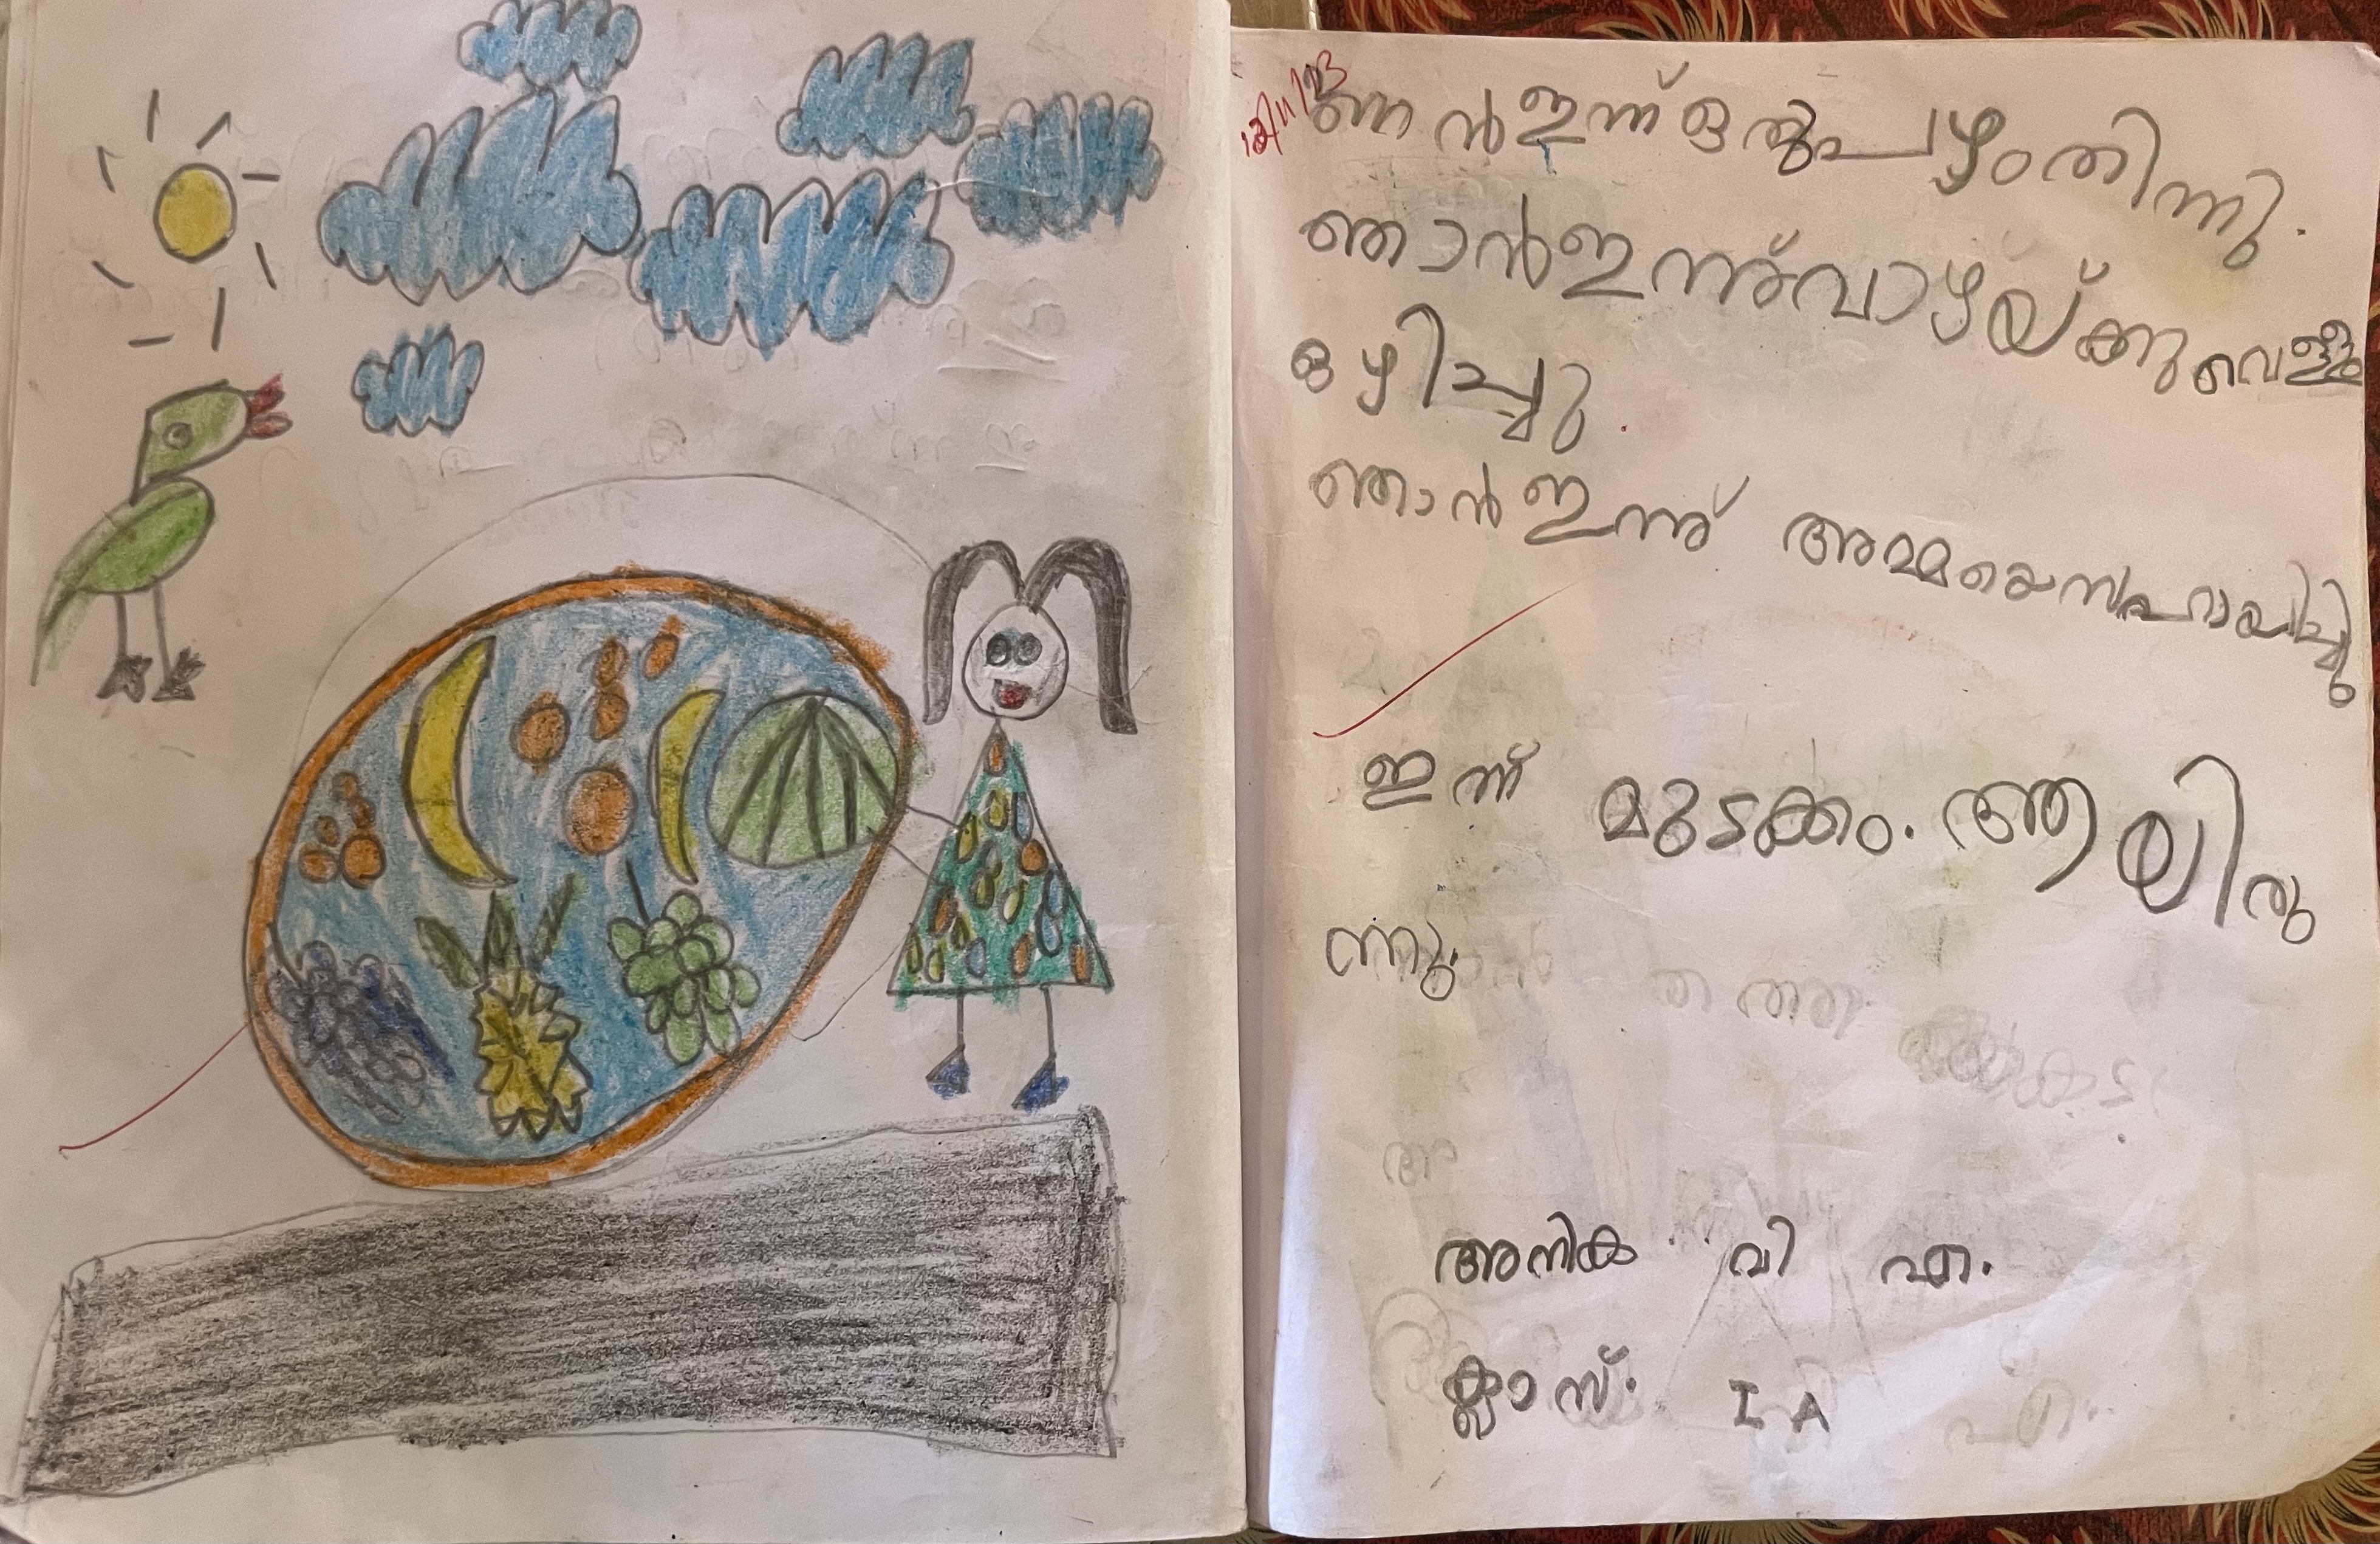 12/11/23
ഞാൻ ഇന്ന് ഒരു പഴം തിന്നു.
ഞാൻ ഇന്ന് വാഴയ്ക്കു വെള്ളം
ഒഴിച്ചു.
ഞാൻ ഇന്ന് അമ്മയെ സഹായിച്ചു
ഇന്ന് മുടക്കം. ആയിരു
ന്നു.
അനിക വി എ.
ക്ലാസ്. I A